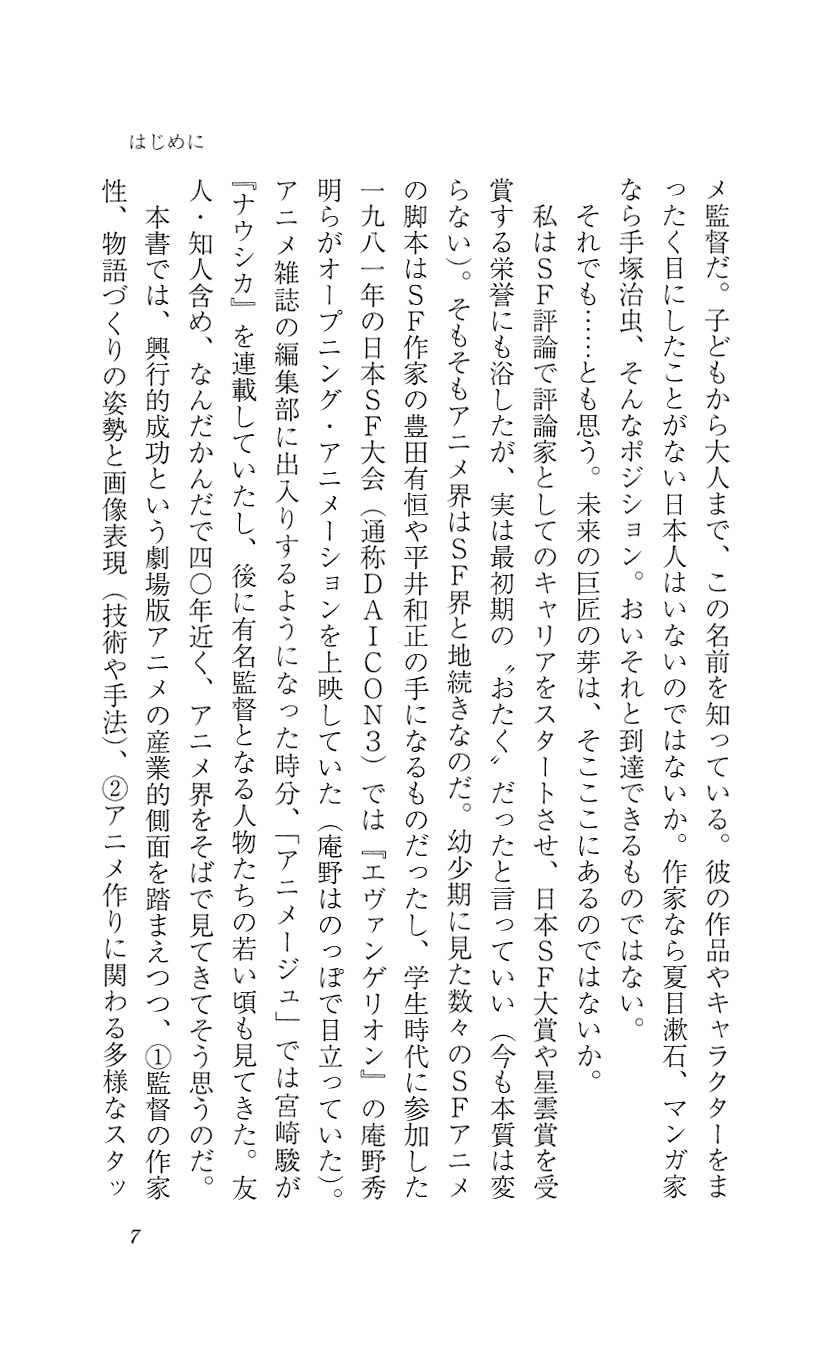 はじめに
メ監督だ。子どもから大人まで、この名前を知っている。彼の作品やキャラクターをま
ったく目にしたことがない日本人はいないのではないか。作家なら夏目漱石、マンガ家
なら手塚治虫、そんなポジション。おいそれと到達できるものではない。
それでも……とも思う。未来の巨匠の芽は、そこここにあるのではないか。
私はＳＦ評論で評論家としてのキャリアをスタートさせ、日本ＳＦ大賞や星雲賞を受
賞する栄誉にも浴したが、実は最初期の〝おたく〟だったと言っていい（今も本質は変
らない）。そもそもアニメ界はＳＦ界と地続きなのだ。幼少期に見た数々のＳＦアニメ
の脚本はＳＦ作家の豊田有恒や平井和正の手になるものだったし、学生時代に参加した
一九八一年の日本ＳＦ大会（通称ＤＡＩＣＯＮ３）では『エヴァンゲリオン』の庵野秀
明らがオープニング・アニメーションを上映していた（庵野はのっぽで目立っていた）。
アニメ雑誌の編集部に出入りするようになった時分、「アニメージュ」では宮崎駿が
『ナウシカ』を連載していたし、後に有名監督となる人物たちの若い頃も見てきた。友
人・知人含め、なんだかんだで四〇年近く、アニメ界をそばで見てきてそう思うのだ。
本書では、興行的成功という劇場版アニメの産業的側面を踏まえつつ、①監督の作家
性、物語づくりの姿勢と画像表現（技術や手法）、②アニメ作りに関わる多様なスタッ
7